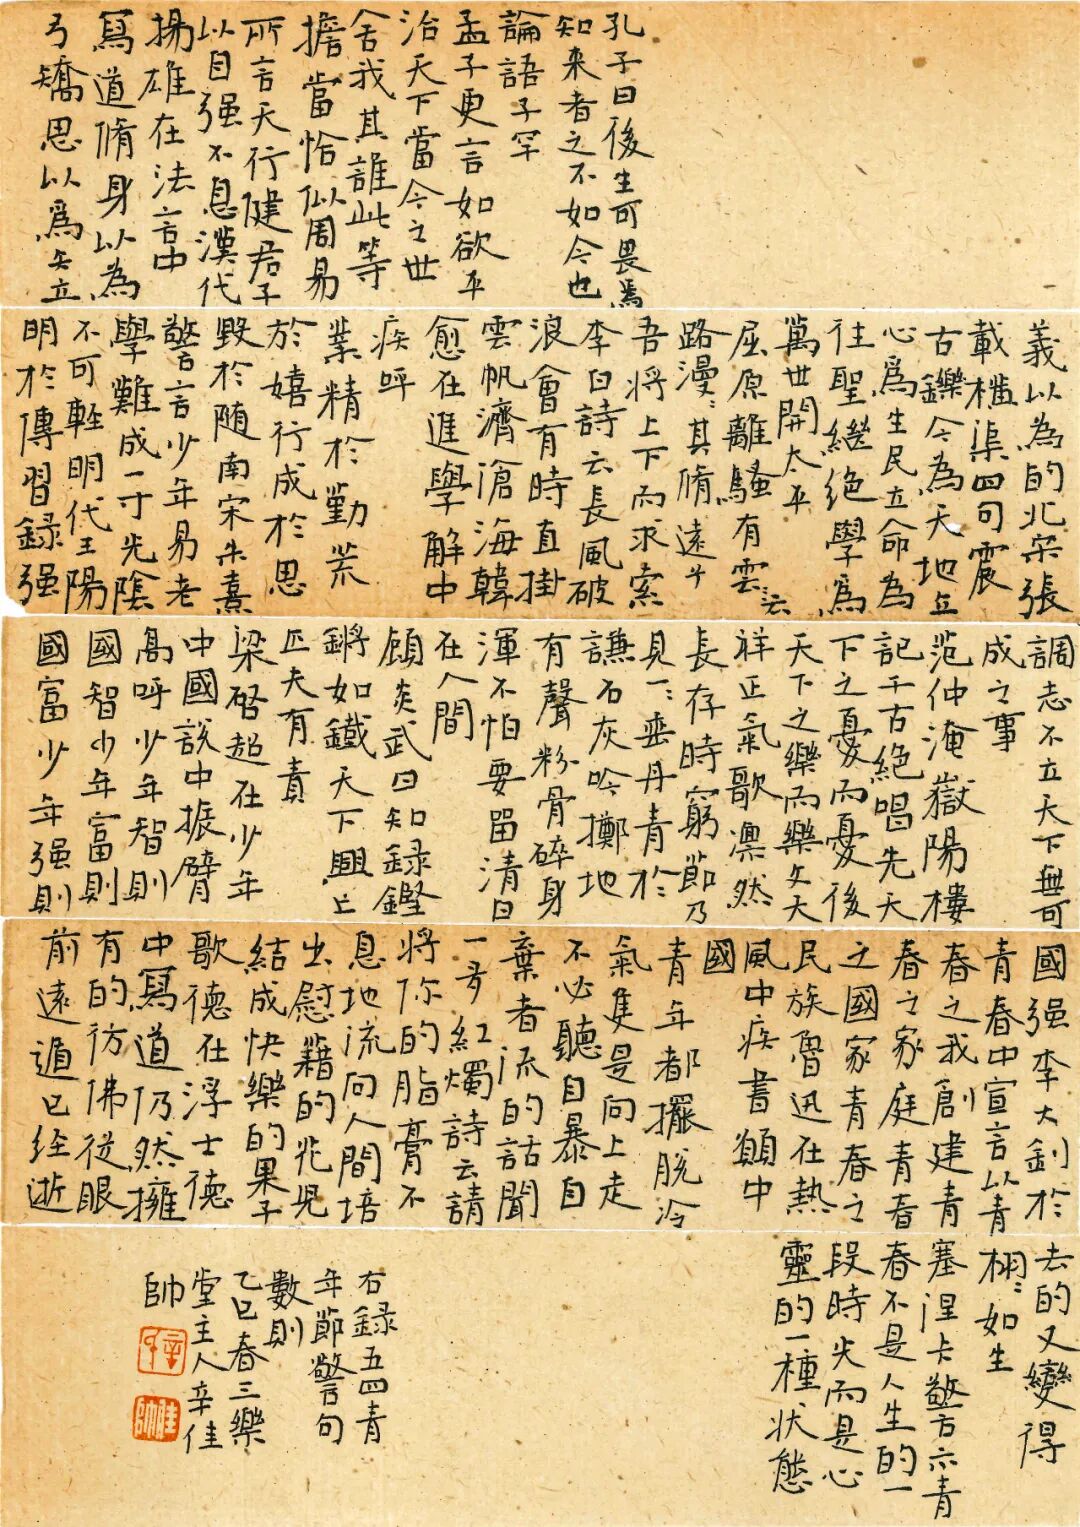 孔子曰後生可畏焉
知来者之不如今也
論語子罕
孟子更言如欲平
治天下當今之世
舍我其誰此等
擔當恰似周易
所言天行健君子
以自强不息漢代
揚雄在法言中
寫道脩身以為
弓矯思以爲矢立
義以為的北宋張
載橫渠四句震
古鑠今為天地立
心爲生民立命為
往聖繼绝學爲
萬世開太平
屈原離騷有雲:云
路漫:其脩遠兮
吾將上下而求索
李白詩云長風破
浪會有時直掛
雲帆濟滄海韓
愈在進學解中
疾呼
業精於勤荒
於嬉行成於思
毀於随南宋朱熹
警言少年易老
學難成一寸光陰
不可軽明代王陽
明於傳習録强
調志不立天下無可
成之事
范仲淹嶽陽樓
記千古絕唱先天
下之憂而憂後
天下之樂而樂文天
祥正氣歌凛然
長存時窮節乃
見一:垂丹青于
謙石灰吟擲地
有聲粉骨碎身
渾不怕要留清白
在人間
顧炎武日知録鏗
鏘如鐵天下興亡
匹夫有責
梁啓超在少年
中國説中振臂
高呼少年智則
國智少年富則
國富少年强則
國强李大釗於
青春中宣言以青
春之我創建青
春之家庭青春
之國家青春之
民族魯迅在熱
風中疾書願中
國
青年都擺脱冷
氣隻是向上走
不必聽自暴自
棄者流的話聞
一多紅燭詩云請
將你的脂膏不
息地流向人間培
出慰藉的花兒
結成快樂的果子
歌德在浮士德
中寫道仍然擁
有的彷佛從眼
前遠遁已经逝
去的又變得
栩:如生
塞涅卡警示青
春不是人生的一
段時光而是心
靈的一種状態
右録五四青
年節警句
數則
乙巳春三樂
堂主人辛佳
帥